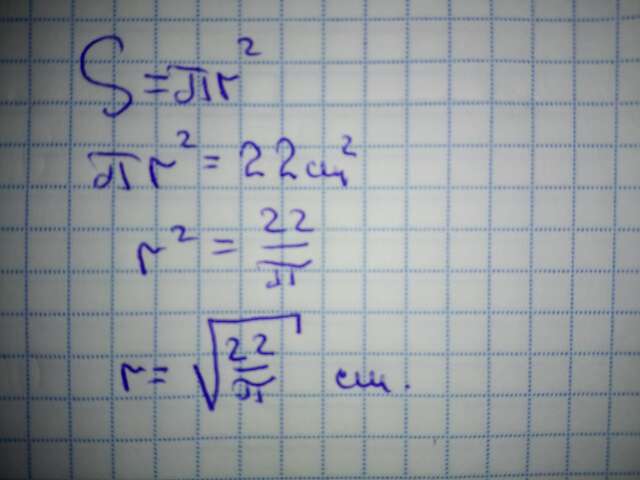 S = πr²
πr² = 22 см²
r² = 22/π
r = √(22/π) см.